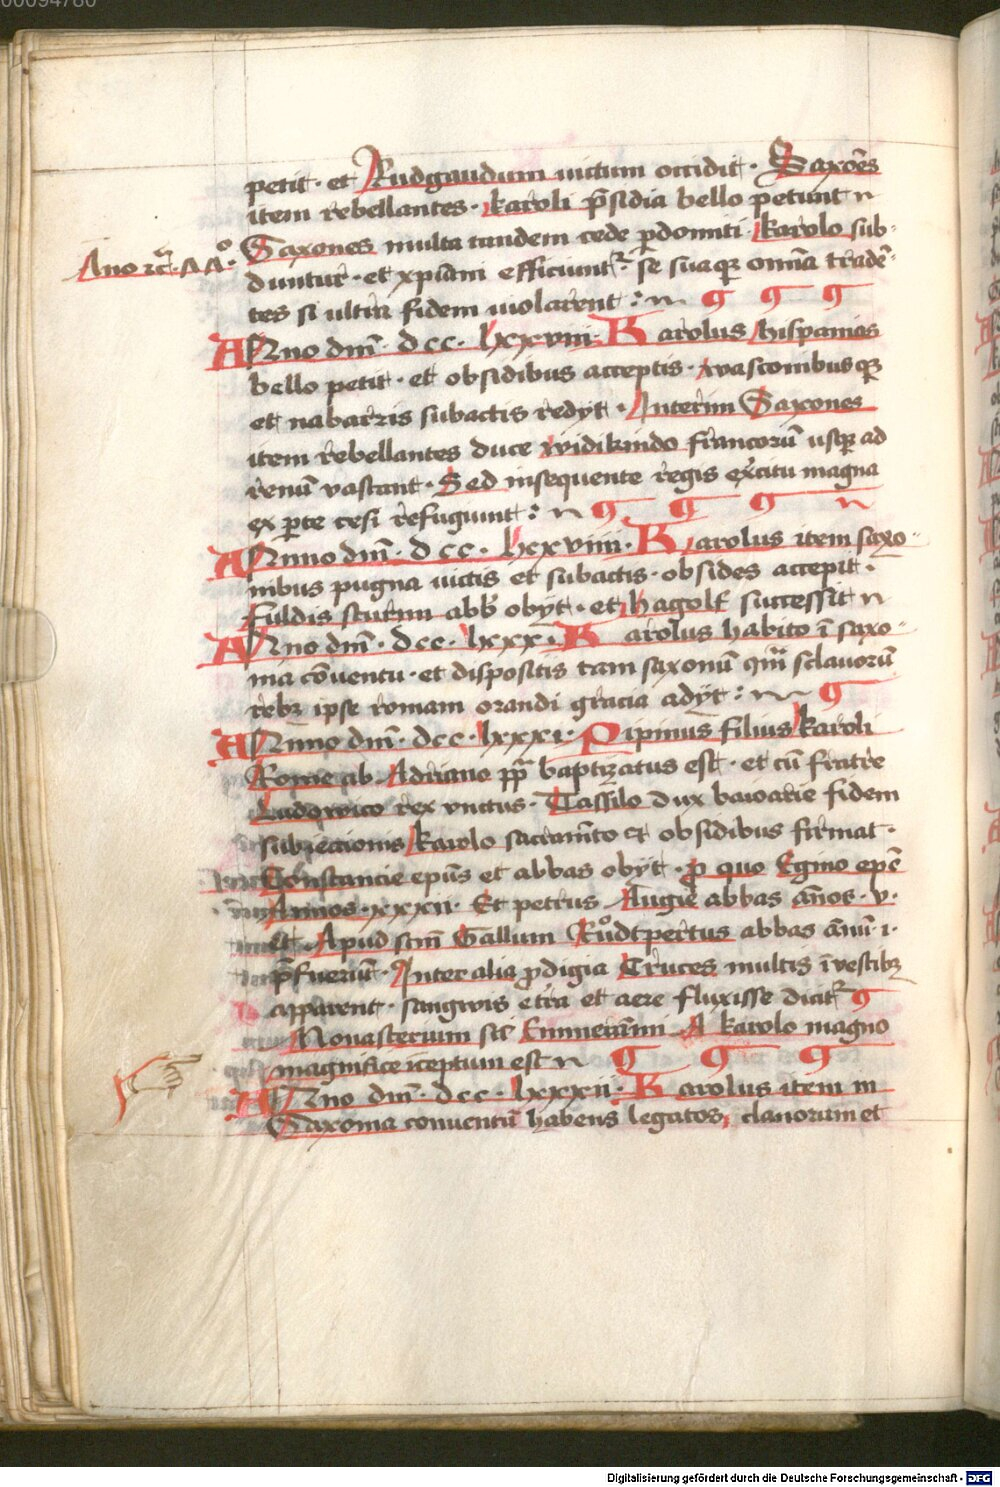 00094780
petit · et Rudgaudum uictum occidit · Saxōes
item rebellantes · karoli p̄sidia bello petunt
Saxones multa tandem cede p̱domiti · karolo sub-
Ano
duntur · et xp̄iani efficiunt᷑ · se suaqꝫ om̄ia traden̄-
tes si ultra fidem uiolarent :
ANno dm̄ · dcc · lxxviii · Karolus hispanias
bello petit · et obsidibus acceptis · wasconibusqꝫ
et nabarris subactis redyt · Interim Saxones
item rebellantes duce widikindo francorū usqꝫ ad
renū vastant · Sed insequente regis exc̄itu magna
ex ꝑte cesi refugiunt :
ANnno dm̄ · dcc · lxxviiii · Karolus item saxo-
nibus pugna uictis et subactis · obsides accepit ·
fuldis sturmi abb̄ obyt · et hagolf successit
ANno dm̄ · dcc · lxxx · Karolus habito ī saxo-
nia cōuentu · et dispositis tam saxonū qm̄ sclauorū
rebꝫ ipse romam orandi gracia adyt :
ANnno dm̄ · dcc · lxxxi · Pipinus filius karoli
Rome ab Adriano pp̄ baptizatus est · et cū fratre
Ludowico rex vnctus · Tassilo dux baioarie fidem
subiectionis karolo sacram̄to et obsidibus firmat ·
Constancie ep̄us et abbas obyt · ꝓ quo Egino epc̄
Annos · xxxii · Et petrus Augie abbas an̄os · v ·
Et Apud scm̄ Gallum Růdtpertus abbas an̄ū · i ·
p̄fuerūt · Inter alia ꝓdigia Cruces multis ī vestibꝫ
apparent · sangwis e tr̄a et aere fluxisse dicit᷑
Monasterium sc̄i Emmerāmi A karolo magno
magnifice īceptum est
ANno dm̄ · dcc · lxxxii · Karolus item in
Saxonia conuentū habens legatos, clauorum et
Digitalisierung gefördert durch die Deutsche Forschungsgemeinschaft - DFG